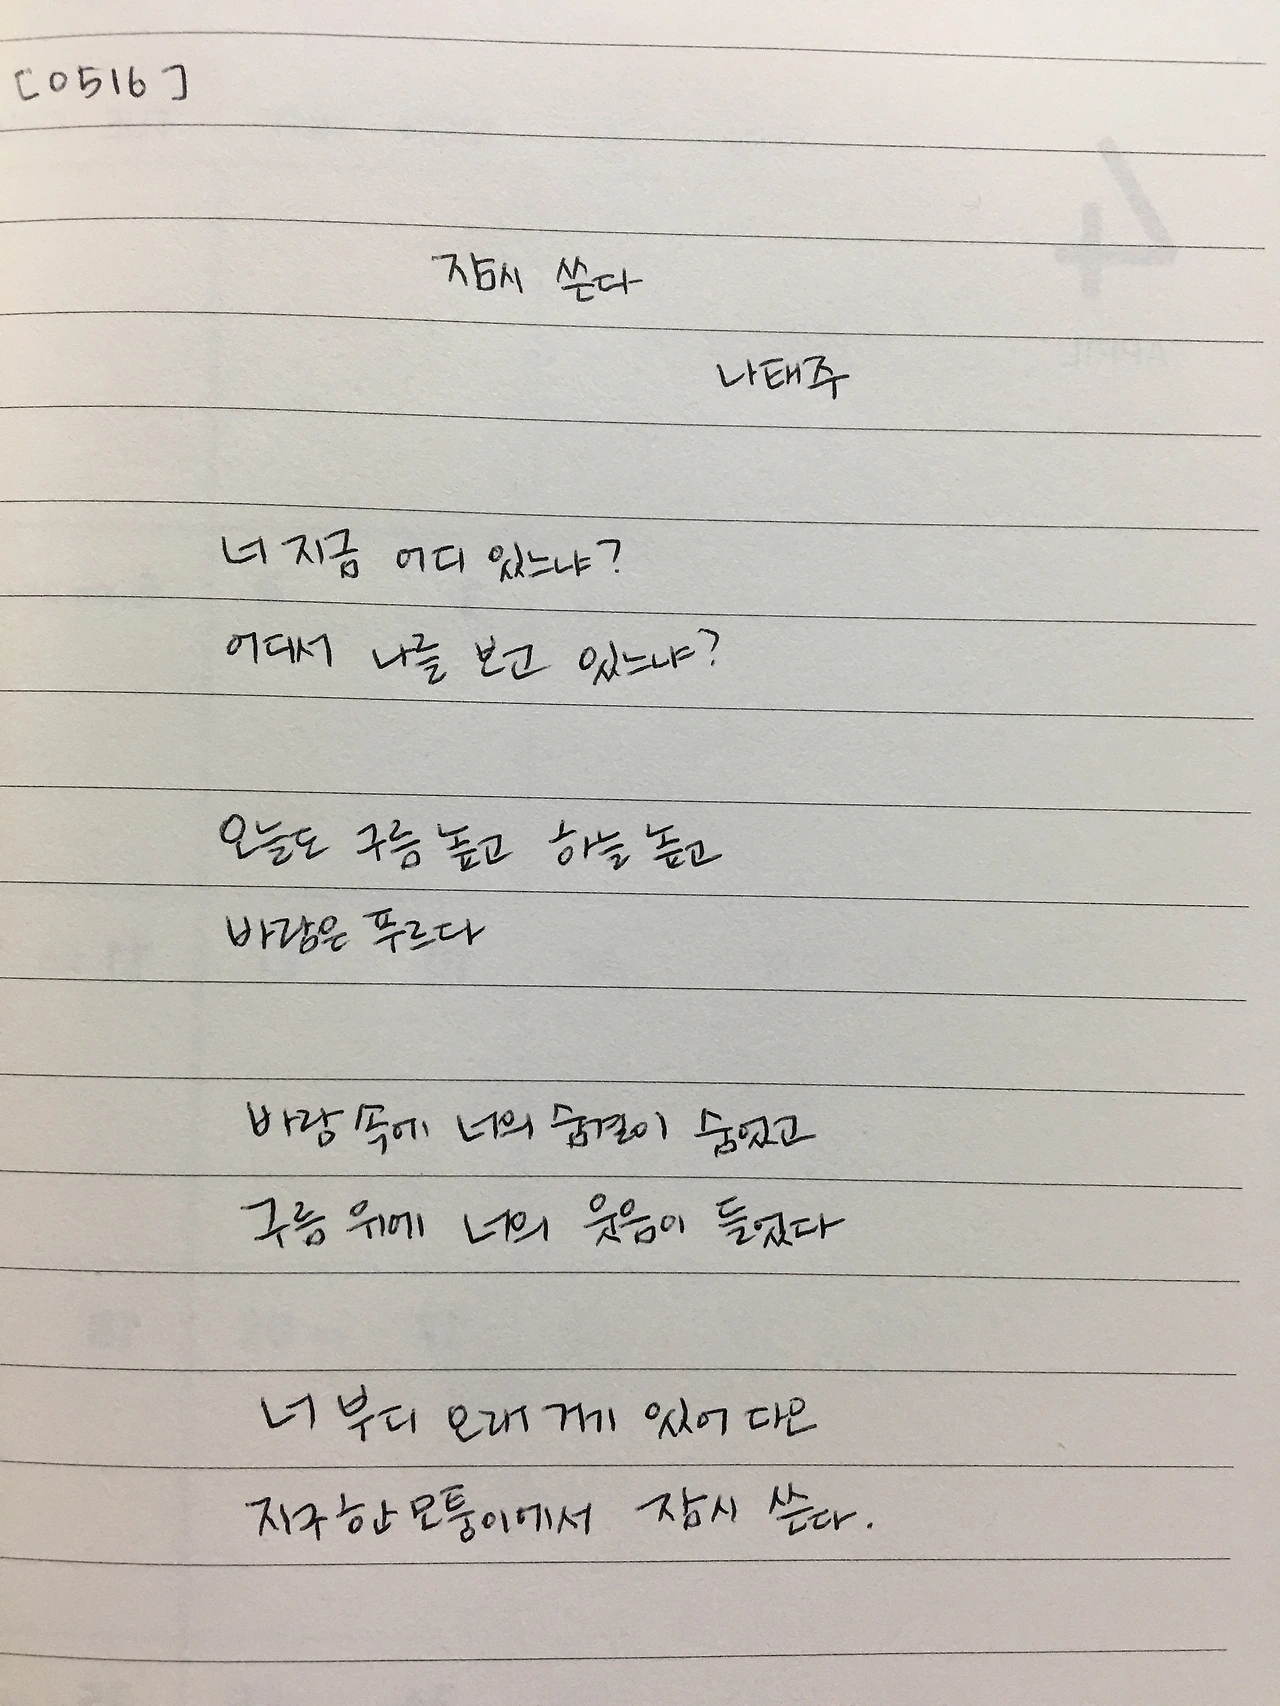 [0516]
잠시 쓴다
나태주
너 지금 어디 있느냐?
어디서 나를 보고 있느냐?
오늘도 구름 높고 하늘 높고
바람은 푸르다
바람 속에 너의 숨결이 숨었고
구름 위에 너의 웃음이 들었다
너 부디 오래 거기 있어 다오
지구 한 모퉁이에서 잠시 쓴다.
4
APRIL